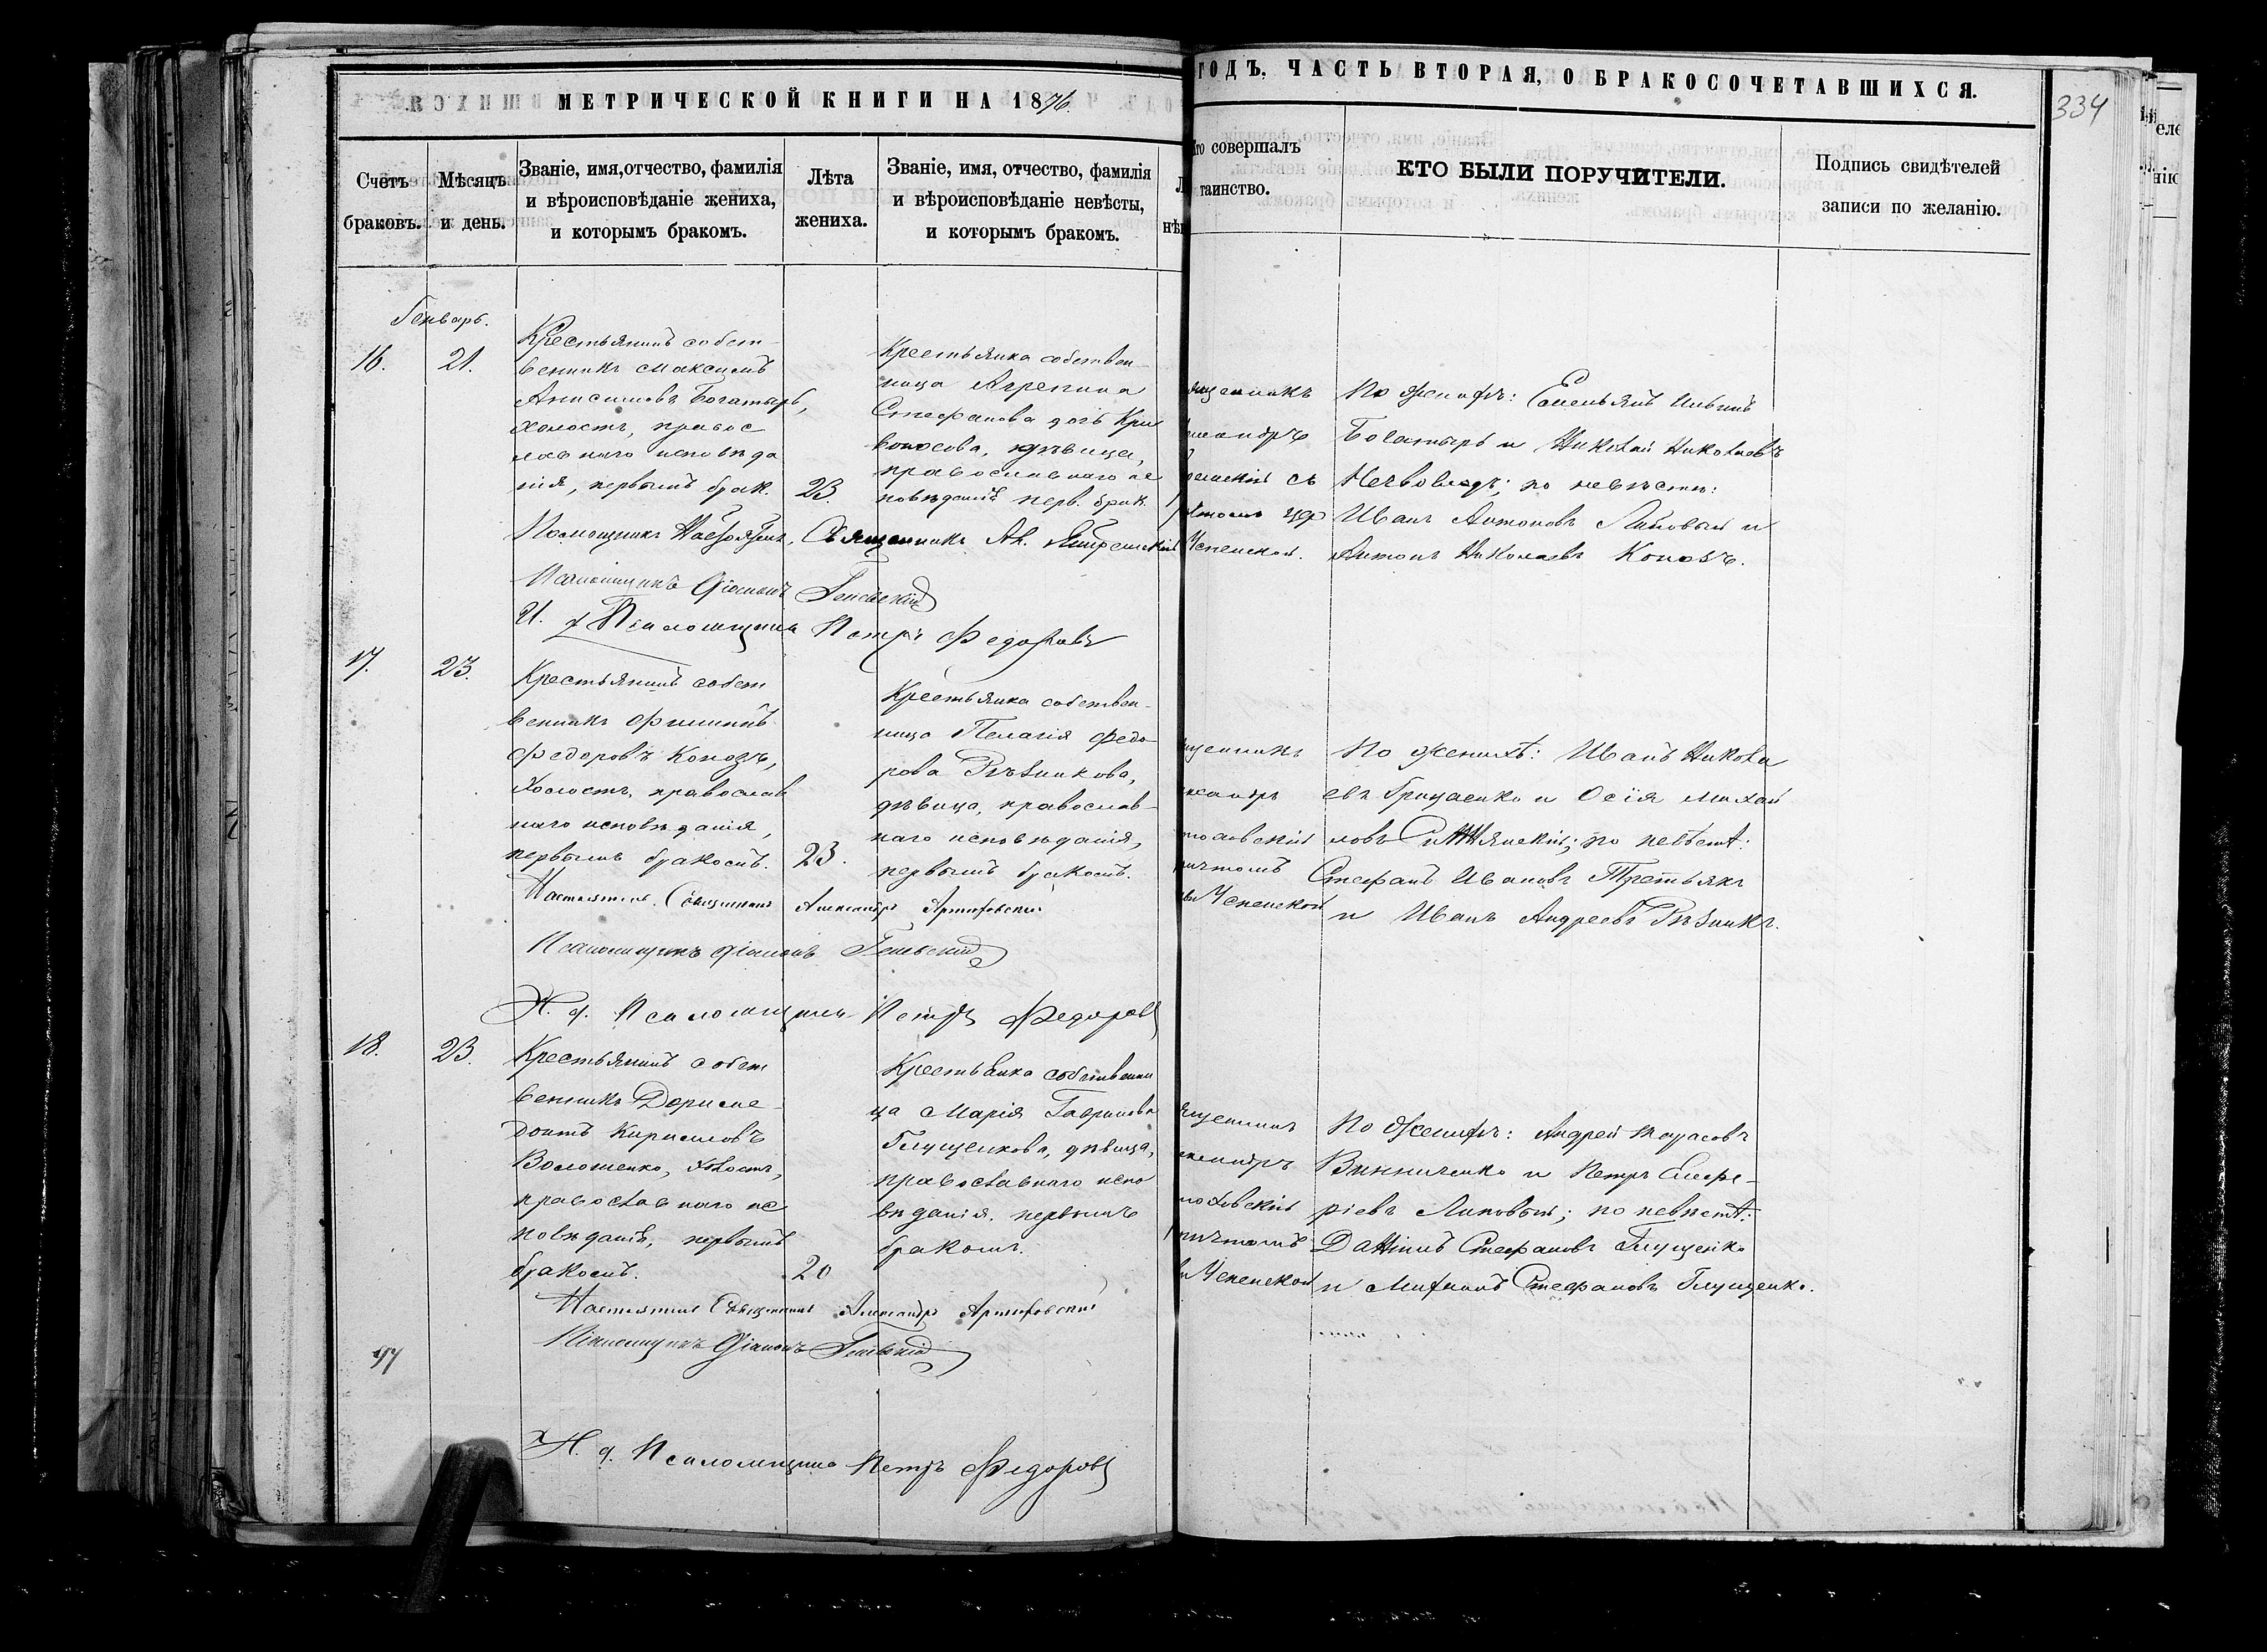 МЕТРИЧЕСКОЙ КНИГИ НА 1876
ГОДЪ. ЧАСТЬ ВТОРАЯ, О БРАКОСОЧЕТАВШИХСЯ.
334
Счетъ
браковъ.
Мѣсяцъ
и день.
Званіе, имя, отчество, фамилія
и вѣроисповѣданіе жениха,
и которымъ бракомъ.
Лѣта
жениха.
Званіе, имя, отчество, фамилія
и вѣроисповѣданіе невѣсты,
и которымъ бракомъ.
совершалъ
таинство.
КТО БЫЛИ ПОРУЧИТЕЛИ.
Подпись свидѣтелей
записи по желанію.
Генварь.
16.
21.
Крестьянинъ собст-
венникъ Максимъ
Анисимовъ Богатырь,
холостъ, правос
лавнаго исповѣда
нія, первымъ брак.
23.
Крестьянка собствен-
ница Агрепина
Стефанова дочь Кри
воносова, дѣвица,
православнаго ис
повѣданія перв. брак.
По женихѣ: Емельянъ Ильинъ
Богатырь и Николай Николаевъ
по невѣстѣ:
Иванъ Антоновъ Липовый и
Антонъ Николаевъ Коновъ.
Успенской.
Священникъ
Псаломщикъ
И. д. Псаломщика Петръ Федоровъ
17.
23.
Крестьянинъ собст
венникъ Филиппъ
Федоровъ
холостъ, православ
наго исповѣданія,
первымъ бракомъ.
23.
Крестьянка собствен-
ница Пелагія Федо-
рова Рѣзникова,
дѣвица, православ-
наго исповѣданія,
первымъ бракомъ.
причтомъ
Успенской
По женихѣ: Иванъ Никола
евъ Грищенко и Осія Михай
ловъ по невѣстѣ:
Стефанъ Ивановъ Третьякъ
и Иванъ Андреевъ Рѣзникъ.
Настоятель Священникъ Александръ
Псаломщикъ
И. д. Псаломщика Петръ Федоровъ
18.
23.
Крестьянинъ собст
венникъ Дориме-
донтъ Кириловъ
Волошенко, холостъ,
православнаго ис
повѣданія, первымъ
бракомъ.
20
Крестьянка собственни
ца Марія Гаврилова
Глущенкова, дѣвица,
православнаго испо
вѣданія, первымъ
бракомъ.
причтомъ
Успенской
По женихѣ: Андрей Тарасовъ
Винниченко и Петръ Елефе-
ріевъ Липовый; по невѣстѣ:
Даніилъ Стефановъ Глущенко
и Митрофанъ Стефановъ Глущенко.
Настоятель Священникъ Александръ
Псаломщикъ
И. д. Псаломщика Петръ Федоровъ